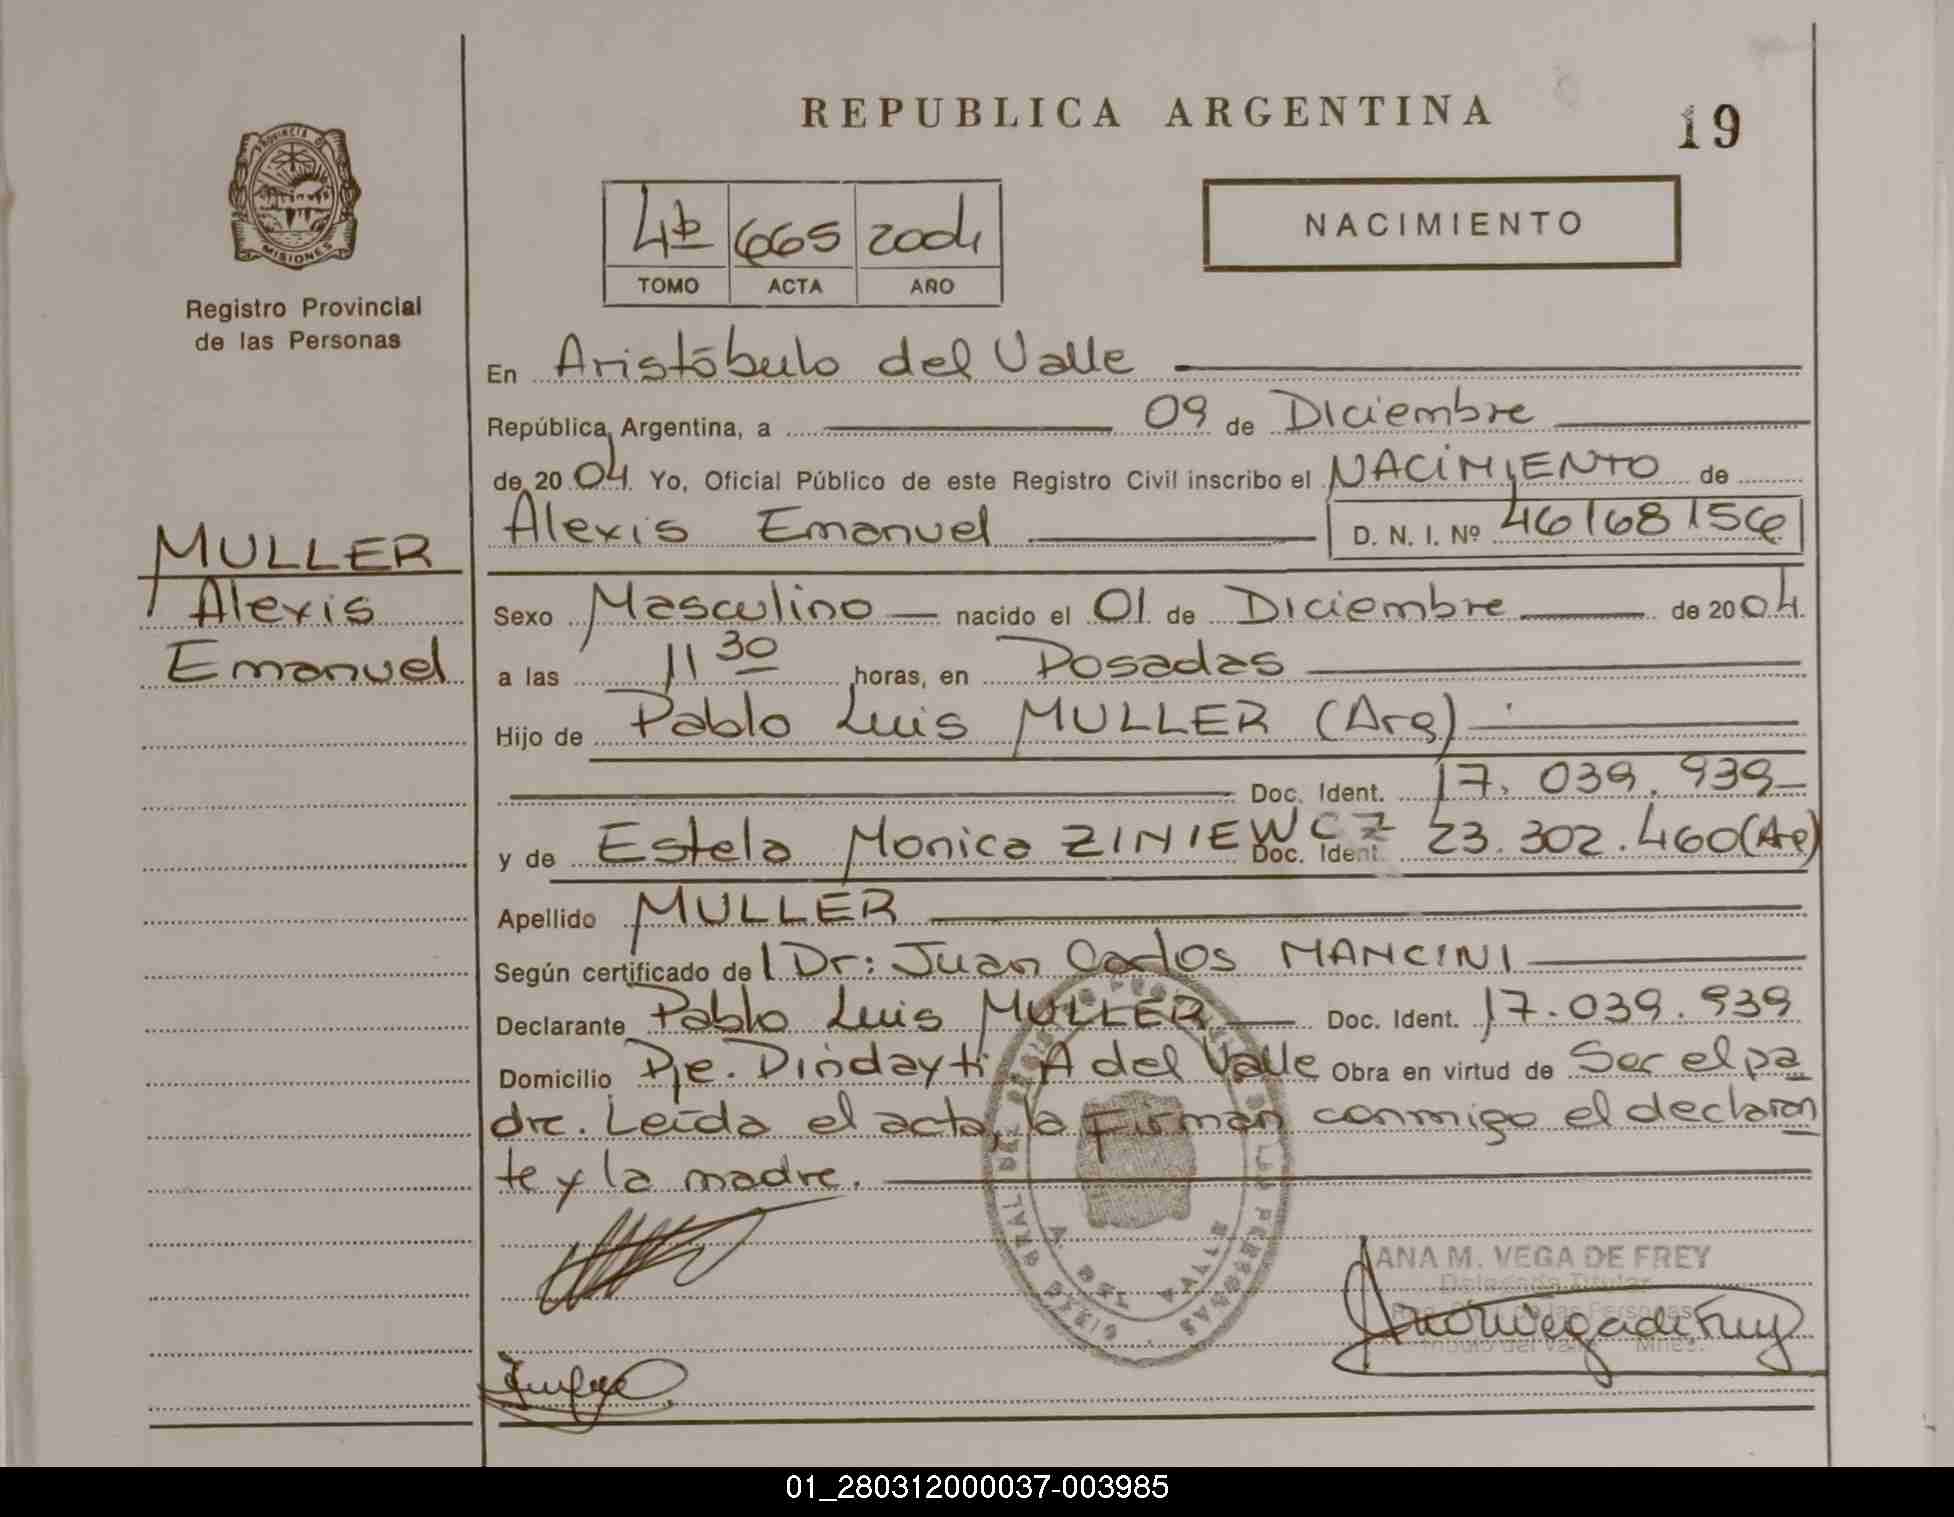 REPUBLICA ARGENTINA
19
PROVINCIA DE
MISIONES
Registro Provincial
de las Personas
NACIMIENTO
4b 665 2004
TOMO ACTA AÑO
En Aristóbulo del Valle
República Argentina, a 09 de Diciembre
de 2004 Yo, Oficial Público de este Registro Civil inscribo el NACIMIENTO de
Alexis Emanuel D. N. I. Nº 46168156
MULLER
Alexis
Emanuel
Sexo Masculino nacido el 01 de Diciembre de 2004
a las 11 30 horas, en Posadas
Hijo de Pablo Luis MULLER (Arg)
Doc. Ident. 17.039.939
y de Estela Monica ZINIEWCZ Doc. Ident. 23.302.460 (Ar)
Apellido MULLER
Según certificado de Dr: Juan Carlos MANCINI
Declarante Pablo Luis MULLER Doc. Ident. 17.039.939
Domicilio Pje. Dindayti A del Valle Obra en virtud de Ser el pa
dre. Leída el acta, la firman conmigo el declaran
te y la madre.
ANA M. VEGA DE FREY
Delegada Titular
de las Personas
01_280312000037-003985